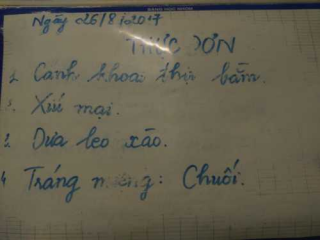 Ngày 26/8/2017
THỰC ĐƠN
1. Canh khoai thịt bằm.
Xíu mại.
3. Dưa leo xào.
4 Tráng miệng: Chuối.